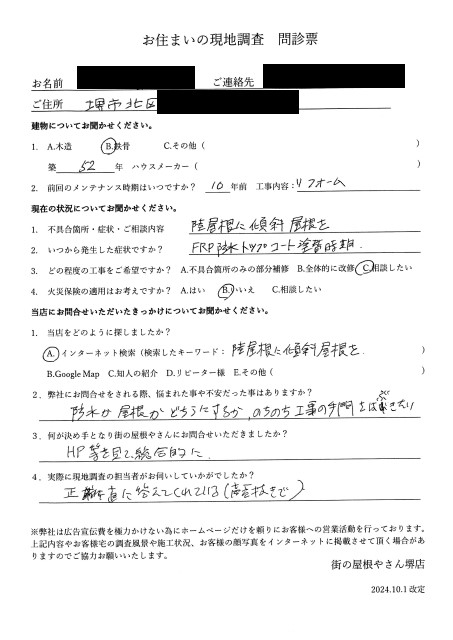 お住まいの現地調査　問診票
お名前　ご連絡先
ご住所　堺市北区
建物についてお聞かせください。
1. A.木造　B.鉄骨　C.その他（　）
築 52 年　ハウスメーカー（　）
2. 前回のメンテナンス時期はいつですか？ 10 年前　工事内容：リフォーム
現在の状況についてお聞かせください。
1. 不具合箇所・症状・ご相談内容　陸屋根に傾斜屋根を
2. いつから発生した症状ですか？　FRP防水トップコート塗替時期.
3. どの程度の工事をご希望ですか？ A.不具合箇所のみの部分補修 B.全体的に改修 C.相談したい
4. 火災保険の適用はお考えですか？ A.はい　B.いいえ　C.相談したい
当店にお問合せいただいたきっかけについてお聞かせください。
1. 当店をどのように探しましたか？
A. インターネット検索（検索したキーワード： 陸屋根に傾斜屋根を.　）
B.Google Map　C.知人の紹介　D.リピーター様　E.その他（　）
2. 弊社にお問合せをされる際、悩まれた事や不安だった事はありますか？
防水か屋根かどちらにするか,のちのち工事の手間をはぶきたい
3. 何が決め手となり街の屋根やさんにお問合せいただきましたか？
HP等を見て総合的に.
4. 実際に現地調査の担当者がお伺いしていかがでしたか？
正直に答えてくれている
※弊社は広告宣伝費を極力かけない為にホームページだけを頼りにお客様への営業活動を行っております。
上記内容やお客様宅の調査風景や施工状況、お客様の顔写真をインターネットに掲載させて頂く場合があ
りますのでご協力お願いいたします。
街の屋根やさん堺店
2024.10.1 改定